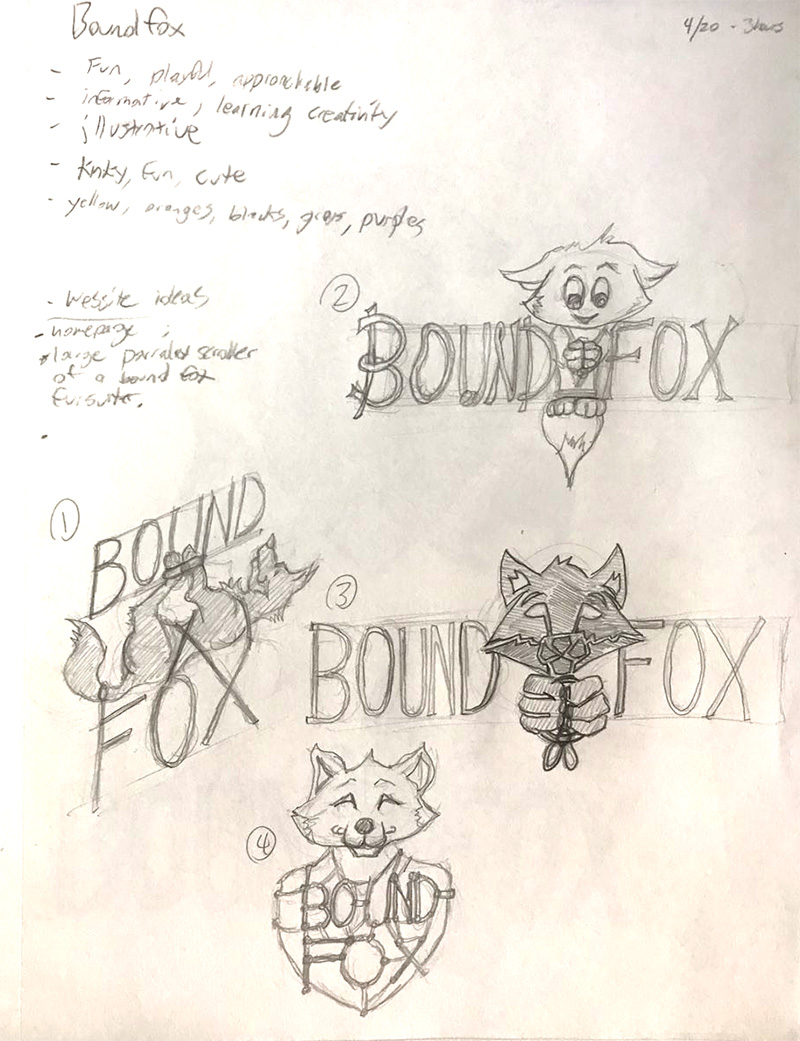 Bound fox
4/20 - 3hours
- Fun, playful, approachable
- informative, learning creativity
- illustrative
- kinky, fun, cute
- yellow, oranges, blacks, grays, purples
- Website ideas
- homepage ;
large parralax scroller
of a bound fox
fursuiter.
2
BOUND FOX
1
BOUND
FOX
3
BOUND FOX
4
BOUND
FOX